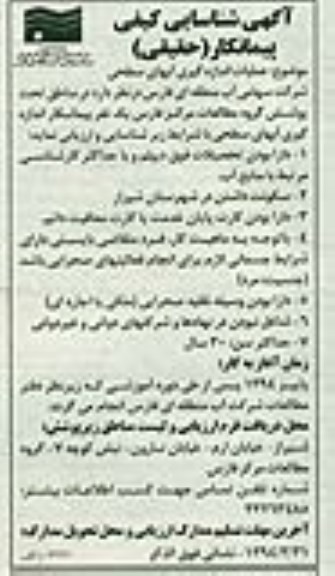 آگهی شناسایی کیفی
پیمانکار (حقیقی)
موضوع: عملیات اندازه گیری آبهای سطحی
شرکت سهامی آب منطقه ای فارس در نظر دارد در مناطق تحت
پوشش گروه مطالعات مرکز فارس یک نفر پیمانکار اندازه
گیری آبهای سطحی با شرایط زیر شناسایی و ارزیابی نماید:
۱- دارا بودن تحصیلات فوق دیپلم و یا حداکثر کارشناسی
مرتبط با منابع آب
۲- سکونت داشتن در شهرستان شیراز
۳- دارا بودن کارت پایان خدمت یا کارت معافیت دائم
۴- با توجه به ماهیت کار، فرد متقاضی بایستی دارای
شرایط جسمانی لازم برای انجام فعالیتهای صحرایی باشد
(جنسیت مرد)
۵- دارا بودن وسیله نقلیه صحرایی (ملکی یا اجاره ای)
۶- شاغل نبودن در نهادها و شرکتهای دولتی و غیردولتی
۷- حداکثر سن: ۳۰ سال
زمان آغاز به کار:
پاییز ۱۳۹۸ پس از طی دوره آموزشی که زیر نظر دفتر
مطالعات شرکت آب منطقه ای فارس انجام می گردد.
محل دریافت فرم ارزیابی و لیست مناطق زیرپوشش:
شیراز - خیابان ارم - خیابان نسارون - نبش کوچه ۷ - گروه
مطالعات مرکز فارس
شماره تلفن تماس جهت کسب اطلاعات بیشتر:
آخرین مهلت تسلیم مدارک ارزیابی و محل تحویل مدارک:
نشانی فوق الذکر